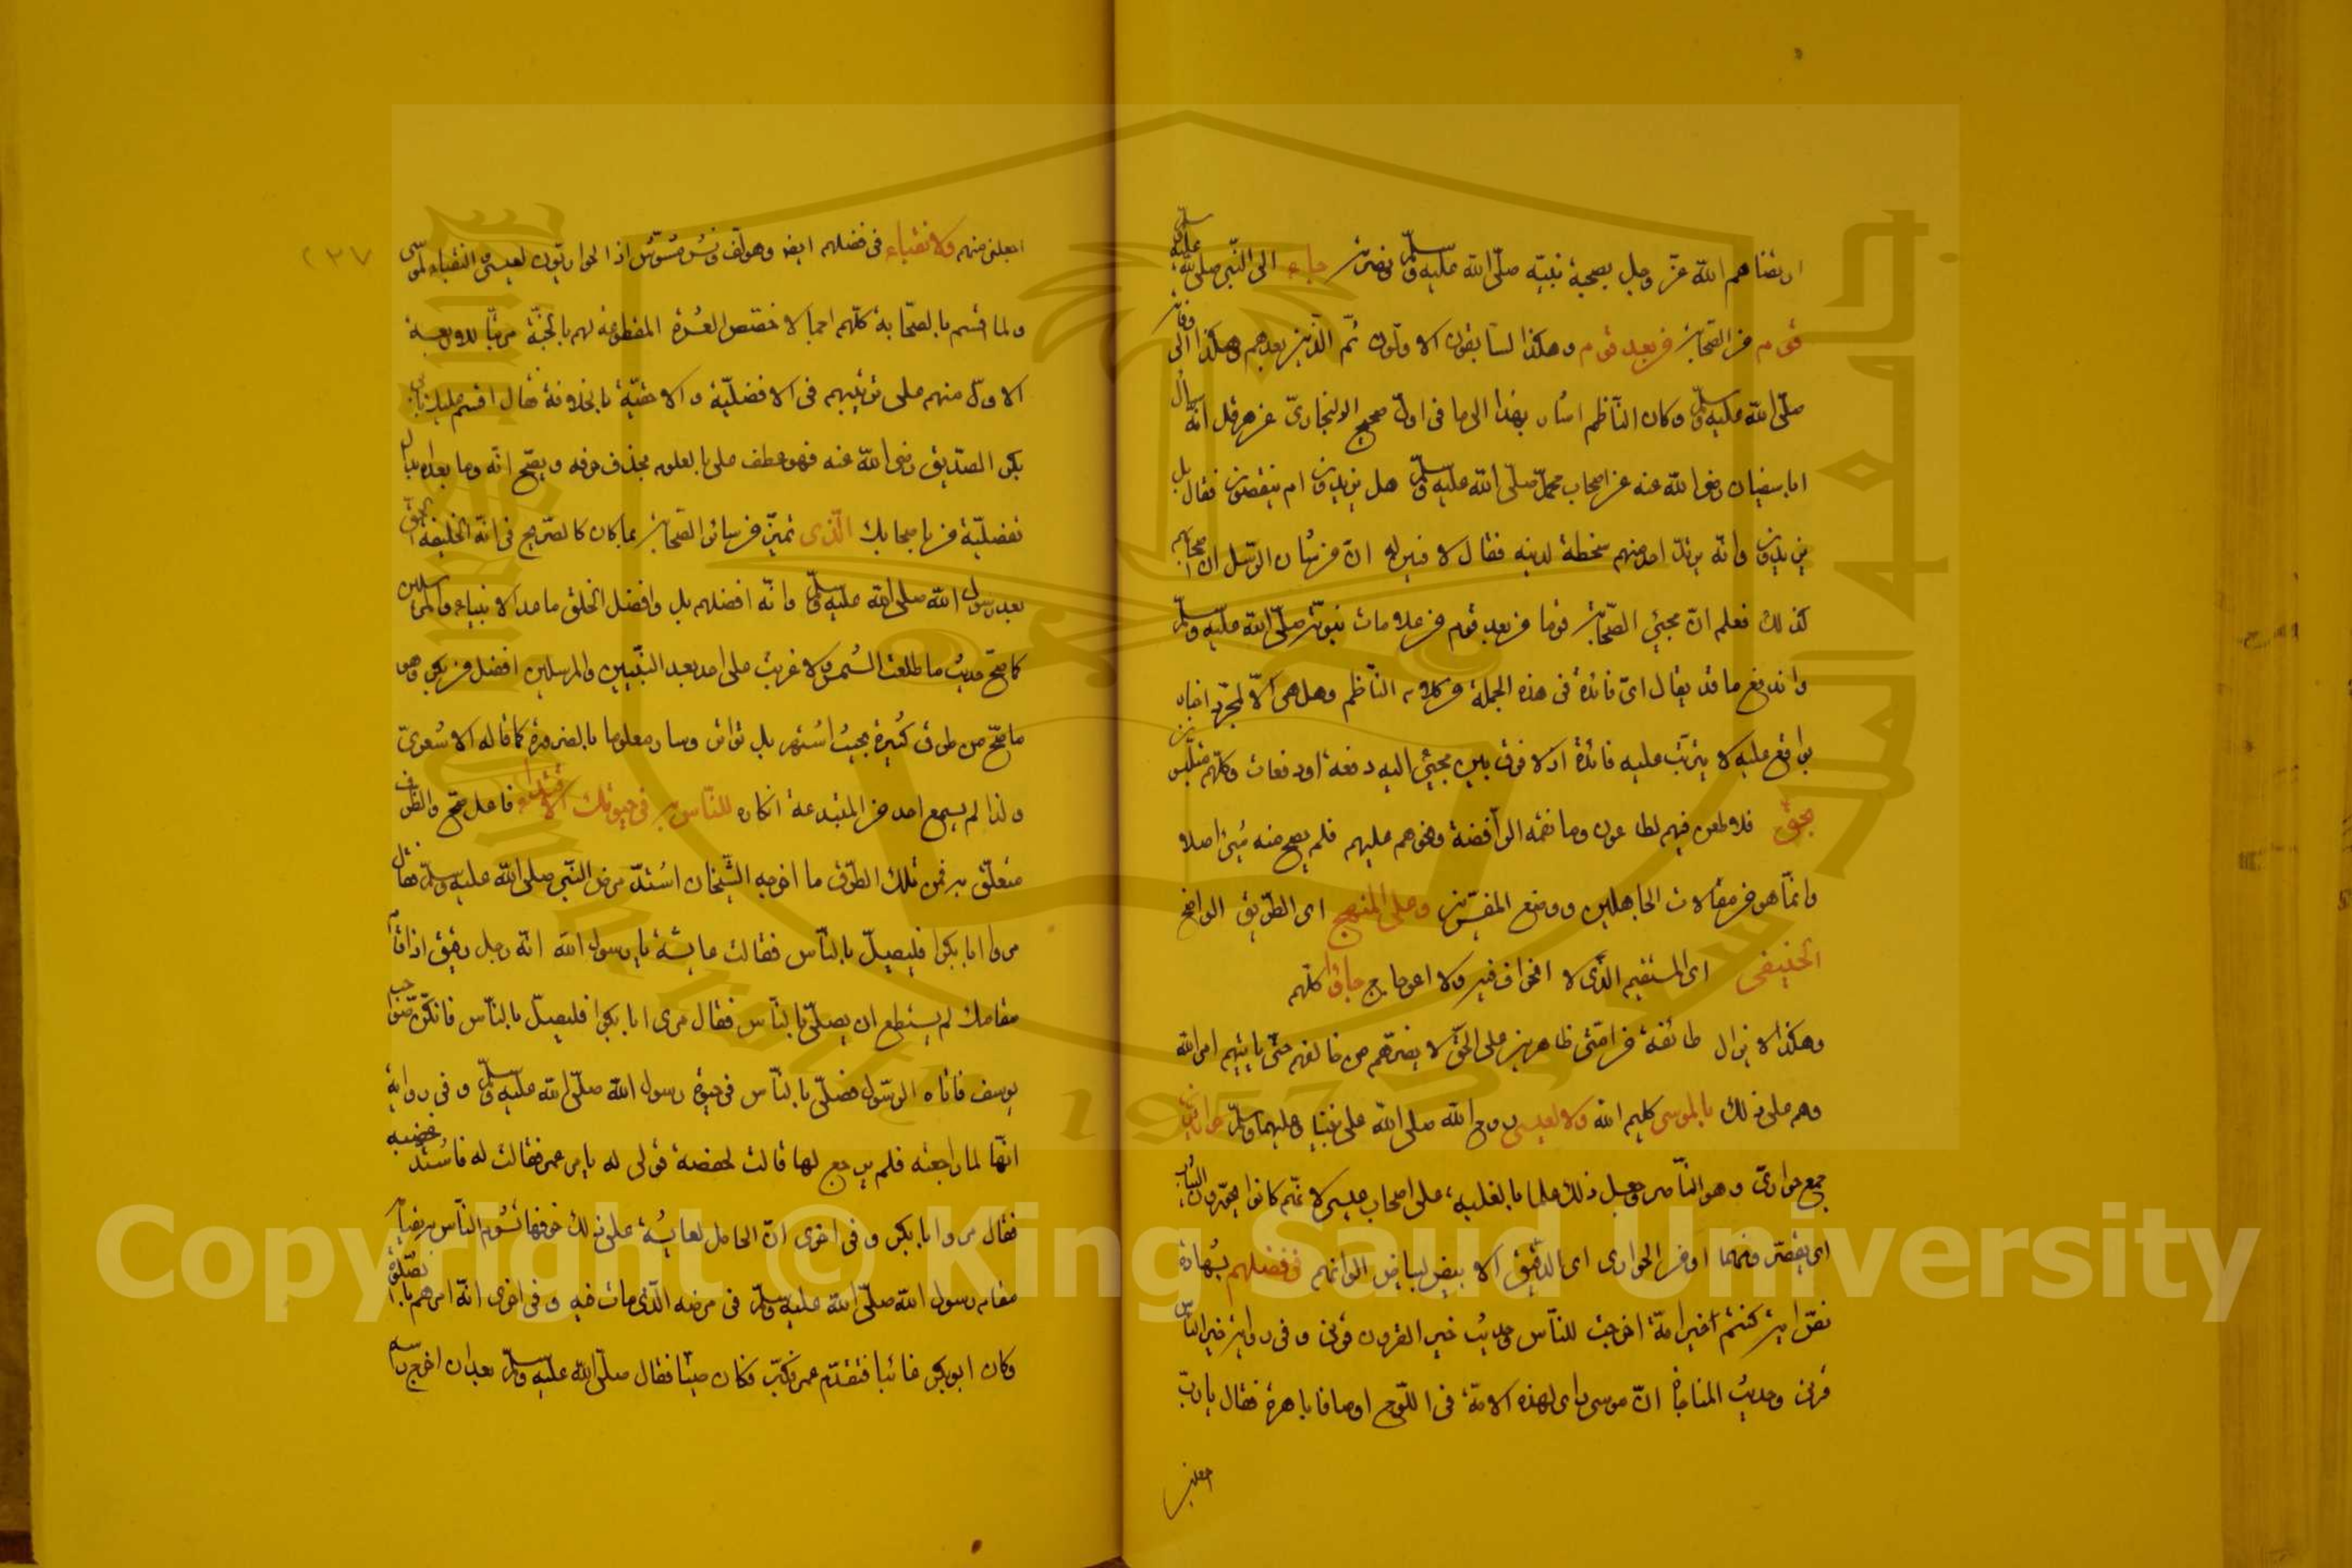 ارتضاهم الله عز وجل بصحبة نبيه صلى الله عليه وسلم ونصرته جاء الى النبي صلى الله عليه وسلم
قوم من الصحابة من بعد قوم وهكذا السابقون الاولون ثم الذين بعدهم وهكذا الى وفاته
صلى الله عليه وسلم وكان الناظم اشار بهذا الى ما في اول صحيح البخاري عن هرقل انه سأل
ابا سفيان رضي الله عنه عن اصحاب محمد صلى الله عليه وسلم هل يزيدون ام ينقصون فقال بل
يزيدون وانه يرتد احد منهم سخطة لدينه فقال لا فبين له ان من شان الرسل ان اصحابهم
كذلك فعلم ان مجيئ الصحابة قوما من بعد قوم من علامات نبوته صلى الله عليه وسلم
واندفع ما قد يقال اي فائدة في هذه الجملة من كلام الناظم وهل هي الا لمجرد اخبار
بواقع عليه لا يترتب عليه فائدة اذ لا فرق بين مجيئ اليه دفعة او دفعات وكلهم متلبس
بحق فلا طعن فيهم لطاعون وما نقمه الرافضة ونحوهم عليهم فلم يصح منه شيئ اصلا
وانما هو من مقالات الجاهلين ووضع المفترين وعلى المنهج اى الطريق الواضح
الحنيفي اى المستقيم الذي لا انحراف فيه ولا اعوجاج جاؤا كلهم
وهكذا لا يزال طائفة من امتي ظاهرين على الحق لا يضرهم من خالفهم حتى ياتيهم امر الله
وهم على ذلك يا لموسى كليم الله ولا لعيسى روح الله صلى الله على نبينا وعليهما وسلم حواريون
جمع حواري وهو الناصر وجعل ذلك علما بالغلبة على اصحاب عيسى لانهم كانوا يحورون الثياب
اى يقصرونها او من الحواري اى الدقيق الابيض لبياض الوانهم في فضلهم بشهادة
نص اية كنتم خير امة اخرجت للناس وحديث خير القرون قرني وفي رواية خير الناس
قرني وحديث المناجاة ان موسى راى لهذه الامة في اللوح اوصافا باهرة فقال يا رب
اجعلني
اجعلني منهم ولا نقباء في فضلهم ايضا وهو لف ونشر مشوش اذ الحواريون لعيسى والنقباء لموسى
ولما اقسم بالصحابة كلهم اجمالا خصص العشرة المقطوعة لهم بالجنة مرتبا للاربعة
الاول منهم على ترتيبهم في الافضلية والاحقية بالخلافة فقال اقسم عليك بابي
بكر الصديق رضي الله عنه فهو عطف على بالعلوم بحذف حرفه ويصح انه وما بعده بدل
تفضلية من باصحابك الذي تميز من سائر الصحابة بما كان كالصريح في انه الخليفة الحق
بعد رسول الله صلى الله عليه وسلم وانه افضلهم بل وافضل الخلق ما عدا الانبياء والمرسلين
كما صح حديث ما طلعت الشمس ولا غربت على احد بعد النبيين والمرسلين افضل من ابي بكر وهو
ما صح من طرق كثيرة بحيث اشتهر بل تواتر وصار معلوما بالضرورة كما قاله الاشعري
ولذا لم يسع احد من المبتدعة انكاره للناس به في حيوتك الاقتداء فاعل صح والظرف
متعلق به فمن تلك الطرق ما اخرجه الشيخان اشتد مرض النبي صلى الله عليه وسلم فقال
مروا ابا بكر فليصل بالناس فقالت عايشة يا رسول الله انه رجل رقيق اذا قام
مقامك لم يستطع ان يصلي بالناس فقال مري ابا بكر فليصل بالناس فانكن صواحب
يوسف فاتاه الرسول فصلى بالناس في حيوة رسول الله صلى الله عليه وسلم وفي رواية
انها لما راجعته فلم يرجع لها قالت لحفصة قولي له يامر عمر فقالت له فاشتد غضبه
فقال مروا ابا بكر وفي اخرى ان الحامل لعايشة على ذلك خوفها تشوم الناس
مقام رسول الله صلى الله عليه وسلم في مرضه الذي مات فيه وفي اخرى انه امرهم بالصلوة
وكان ابو بكر غائبا فتقدم عمر فكبر وكان صيتا فقال صلى الله عليه وسلم بعد ان اخرج راسه
٢٣٧
Copyright © King Saud University
1957